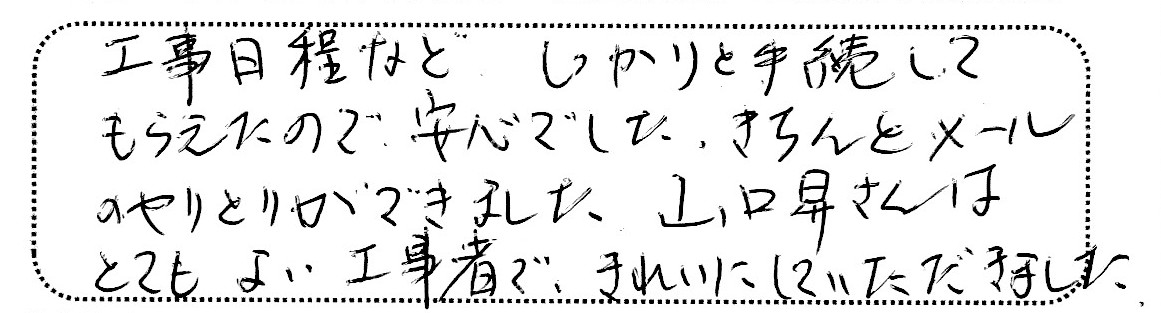 工事日程など しっかりと手続して
もらえたので、安心でした。きちんとメール
のやりとりができました。山口昇さんは
とてもよい工事者で、きれいにしていただきました。